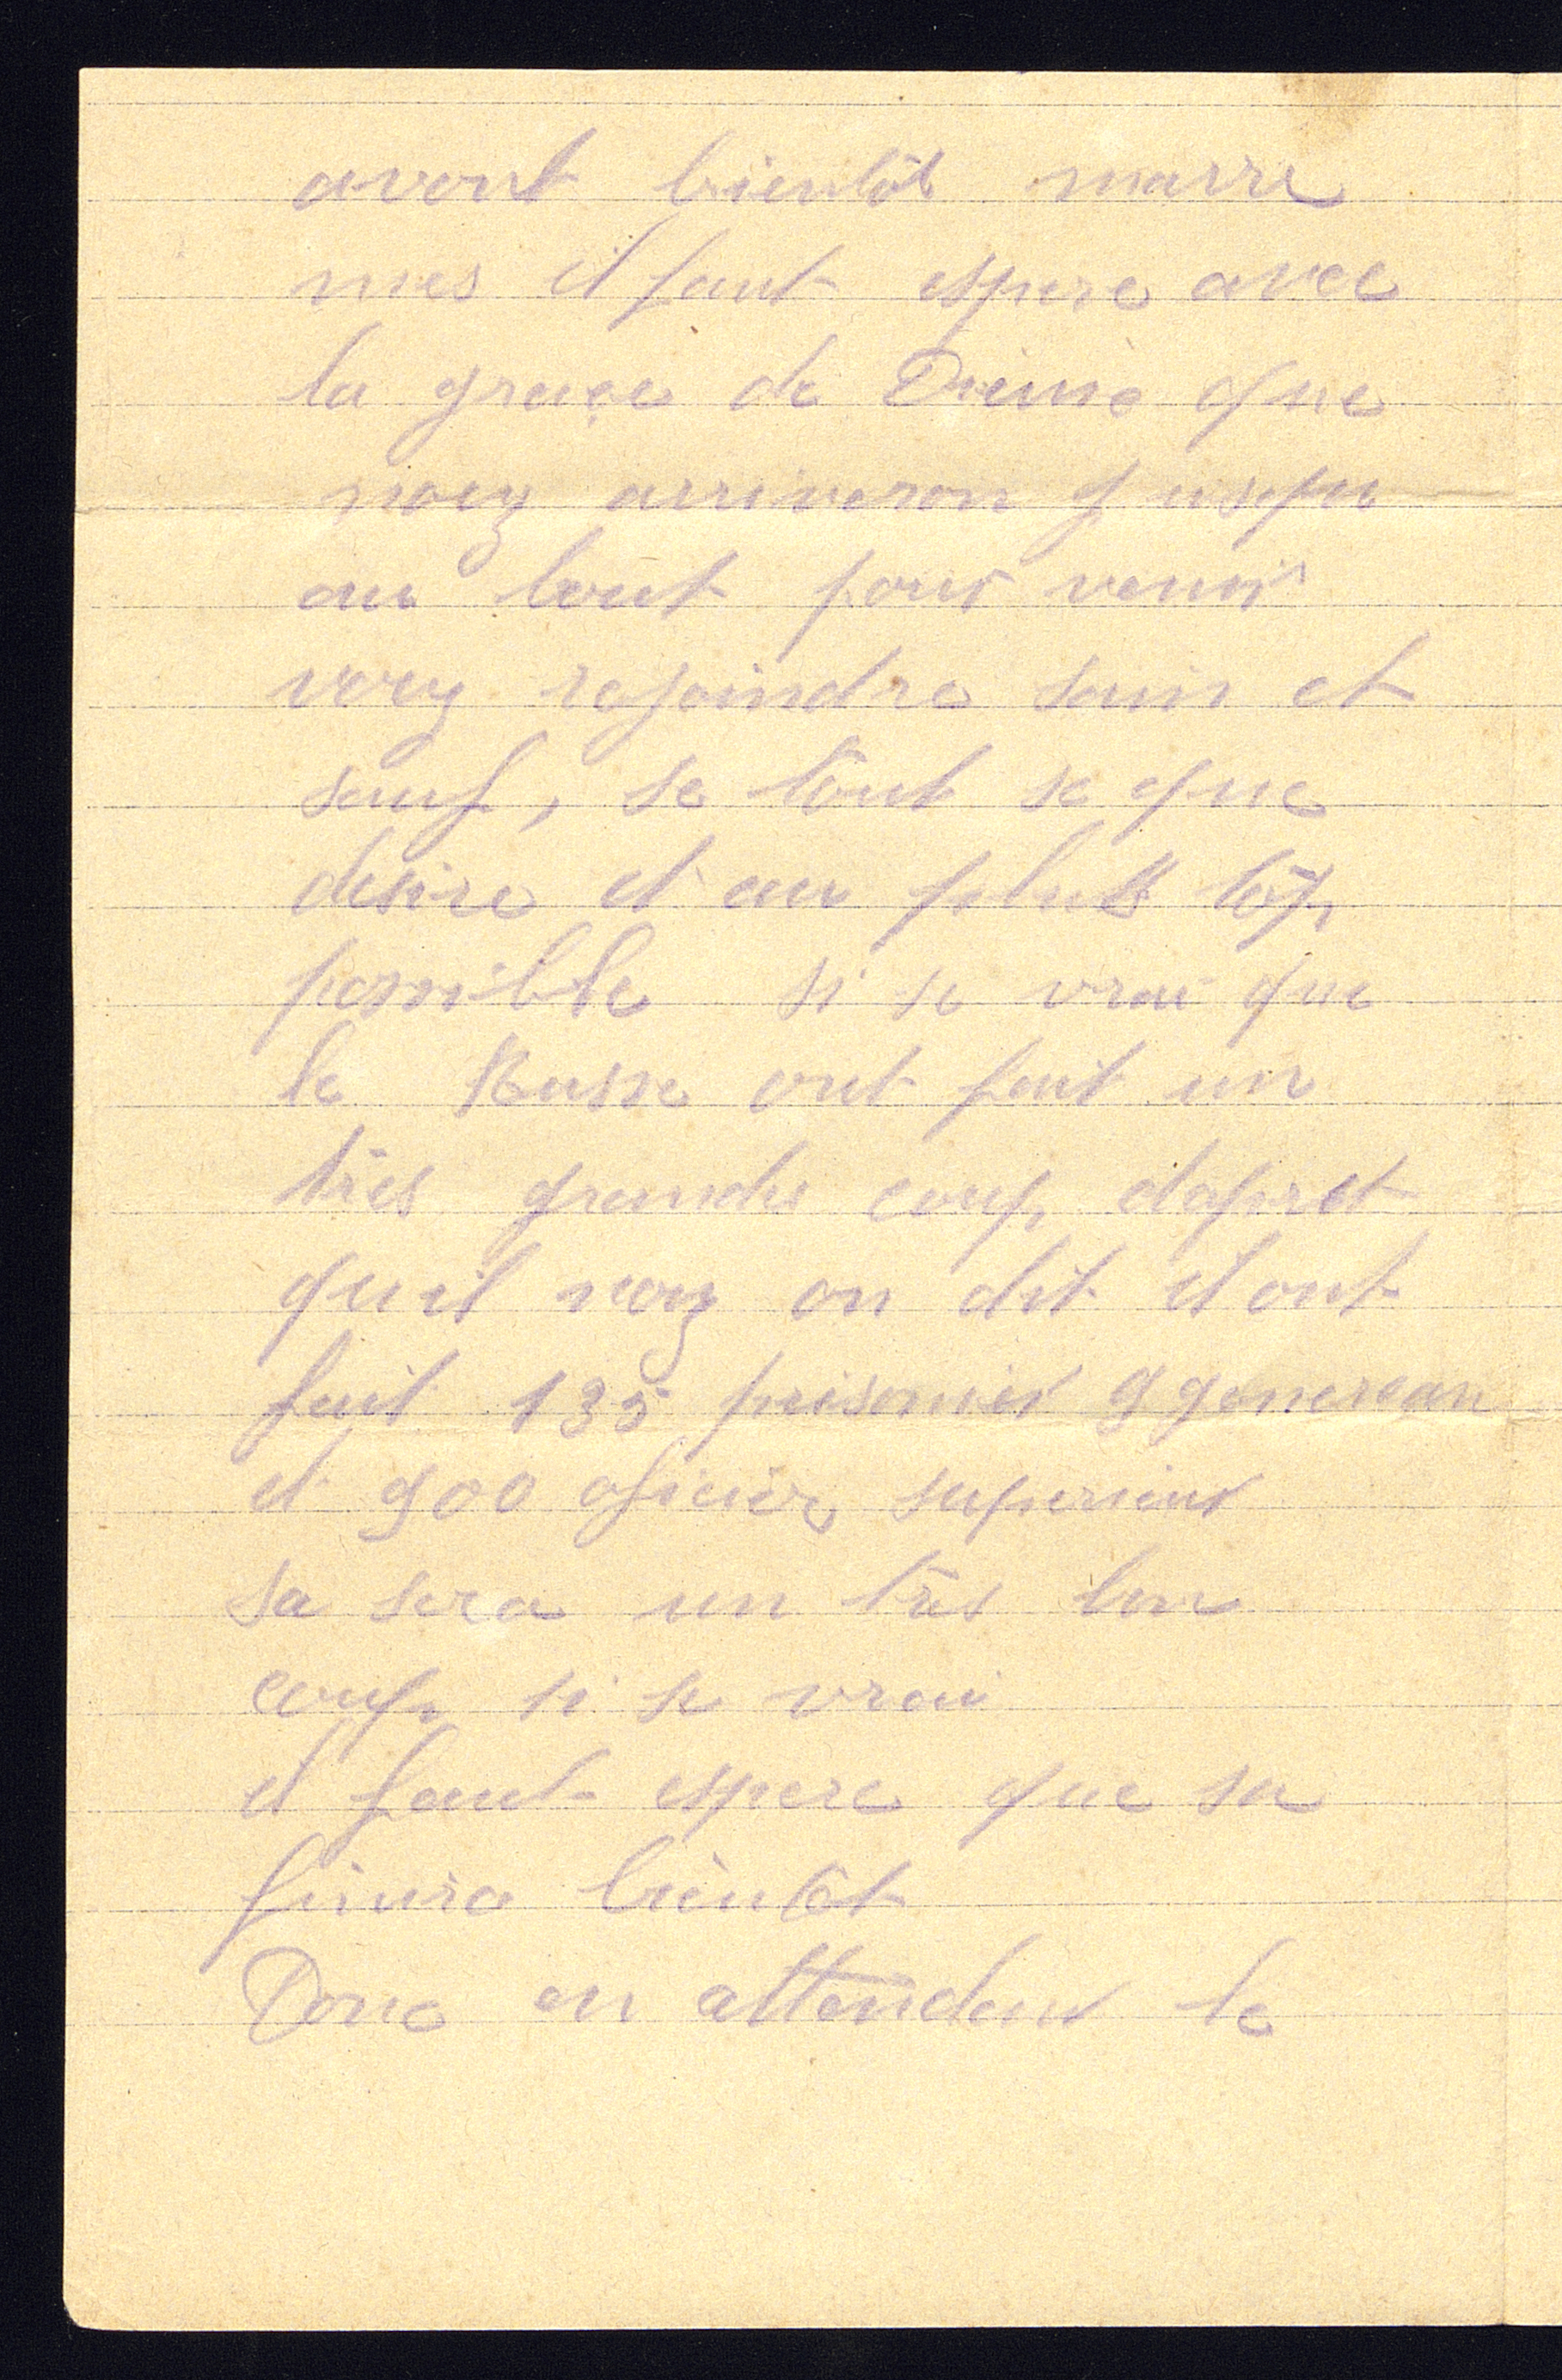 avont bientôt marre
mes il faut espere avec
la grace de Dieu que
nouz arriveron jusqu
au bout pour venir
vouz rejoindre sain et
sauf, se tout se que
desire et au plus tôt
possible si se vrai que
le Russe ont fait un
très grande coup dapret
quil nouz on dit il ont
fait 135 prisonier 9 genereau
et 900 oficier superieur
sa sera un très bon
coup si se vrai
il faut espere que sa
finira bientôt
Donc en attendent le